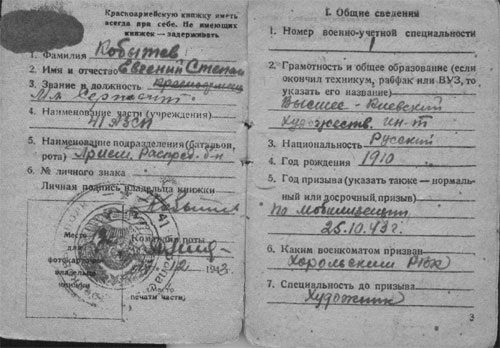 Красноармейскую книжку иметь
всегда при себе. Не имеющих
книжек — задерживать
1. Фамилия Кобытев
2. Имя и отчество Евгений Степан
3. Звание и должность Красноармеец
Мл. Сержант
4. Наименование части (учреждения)
41 АЗСП
5. Наименование подразделения (батальон,
рота) Распред. б-н
6. № личного знака
Личная подпись владельца книжки
Кобытев
Место
для
фотокарточки
владельца
книжки
Командир роты
12 1943.
Место
печати части
I. Общие сведения
1. Номер военно-учетной специальности
1
2. Грамотность и общее образование (если
окончил техникум, рабфак или ВУЗ, то
указать его название)
Высшее - Киевский
художеств. ин-т
3. Национальность Русский
4. Год рождения 1910
5. Год призыва (указать также — нормаль-
ный или досрочный призыв)
По мобилизации
25.10.43 г.
6. Каким военкоматом призван
Хорольским РВК
7. Специальность до призыва
Художник
3